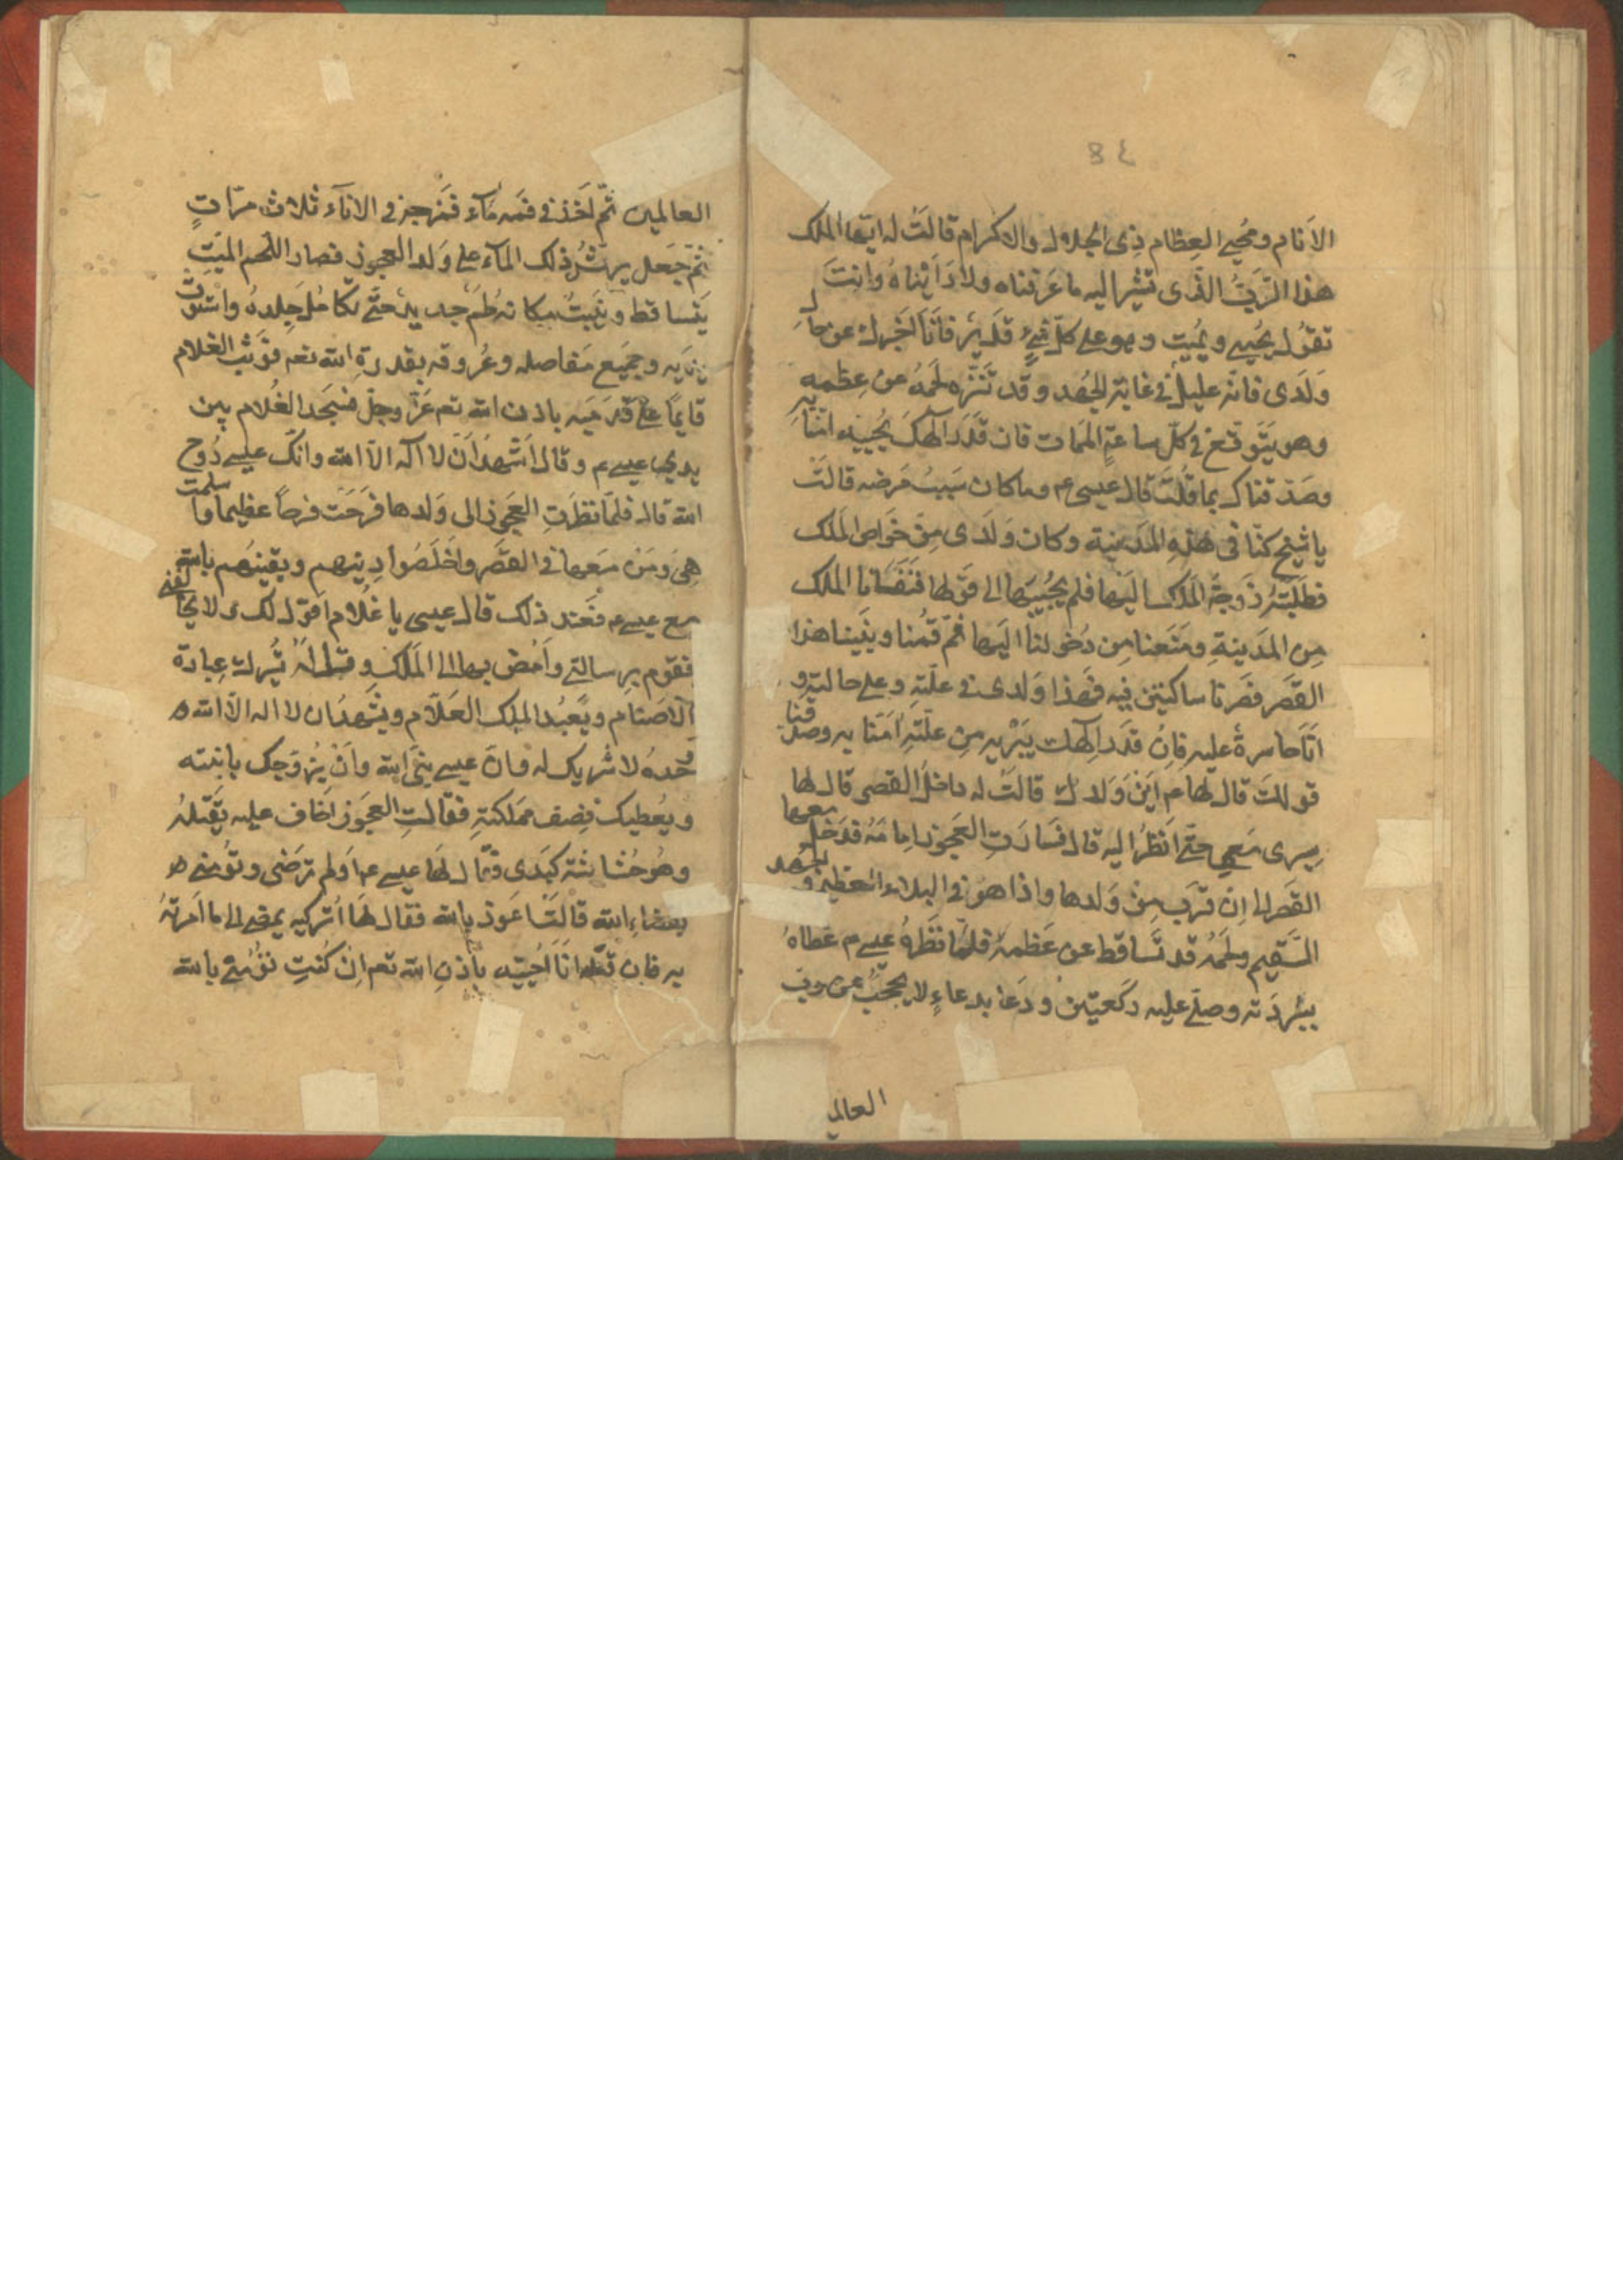 ٤ 8
الاَنام ومُحيي العِظام ذِى الجلال والاكرام قالَتْ له ايّها الملك
هذا الرّبّ الذّى تشير اليه ما عَرَفناه ولا رَاَيْناهُ وانتَ
تقوُل يُحيى ويُميت وهو على كلّ شئٍ قَديرٌ فاَنَا اُخْبرك عن حال
وَلَدى فانّه عليلٌ فى غاية الجُهد وقد تَنَثَّره لَحمهُ عن عظمه
وهو يَتَوقّع فى كلّ ساعةٍ المَمات فان قَدَر الٓهكَ يُحييه امَنّا به
وصَدّقناك بما قُلتَ قال عيسى عم وما كان سَبَبُ مَرَضه قالَتْ
يا شيخ كنّا فى هٰذهِ المَدينة وكان وَلَدى مِنْ خَواص المَلك
فطَلَبَتْهُ زَوجَة المَلك اليَها فلم يُجيبَها الى قَولها فنَفَانا الملك
مِن المَدينةِ ومَنَعَنا مِن دُخولنا اليَها ثمّ قُمنا وبَنَينا هذا
القَصَر فصَرنا ساكنين فيه فهٰذا وَلدى فى علّته وعلى حالته و
اَنَا حاسرةٌ عليه فانْ قدَر الٓهك يَبْريه مِن علّتهِ اٰمَنّا به وصدّقنا
قولكَ قال لها عم اَيْنَ وَلدك قالَتْ له داخل القصر قال لها
سِيرى مَعى حتّى اَنظرُ اليه قال فسارَتِ العَجوز اِمامَهُ فدَخل معها
القصَر الى ان قرَب مِن وَلدها واذا هوَ فى البلاء العظيم والجُهد
السَّقيم ولَحمُهُ قد تَساقط عن عَظمه فلمّا نظَرهُ عيسى عم غطاهُ
ببُردَته وصلّى عليه ركعتين ودَعا بدعاءٍ لا يحجَبُ عن ربّ
العالم
العالمين ثمّ اَخذ فى فمه مآء فمَزجه فى الانآء ثلاث مرّاتٍ
ثمّ جَعل يَرشُّ ذلك المآء على وَلد العجوز فصار اللّحم الميّتِ
يَتساقط ويَنبتُ مكانه لَحم جديدٌ حتّى تكامل جِلدهُ واستوت
وجميَع مَفاصله وعُروقه بقدرةِ الله تعم فوَثب الغلام
قايماً على قدَمَيه باذن الله تعم عَزّ وجلّ فسَجَد الغُلام بين
يدي عيسى عم وقال اَشهدُ اَنْ لا آله الاّ الله وانّك عيسى رُوح
الله قال فلمّا نظَرَتِ العَجوز الى وَلدها فَرحَت فرحاً عظيما واسلمت
هِىَ ومَن مَعها فى القَصَر واَخلَصُوا دِينهم ويقينهُم بالله
مع عيسى عم فعَند ذلك قال عيسى يا غُلام اَقول لك لا تخالفنى
فقوم برسالتى واَمْض بها الى المَلك وقل له يَترك عِبادة
الاَصنام ويَعْبُد المِلك العَلاّم ويَشهدُ ان لا اله الاّ الله
وحدهُ لا شريك له وانّ عيسى نبىّ الله وانْ يُزوّجك بابنته
ويُعطيك نِصف مَملكتهِ فقالتِ العجَوز اَخاف عليه يَقتله
وهُو حُشاشَة كبَدى فقال لَها عيسى عم اَولم تَرضى وتؤمنى
بقضاءِ الله قالَتْ اَعوذ بالله فقال لهَا اُتركيه يمضى الى ما اَمرتهُ
به فان قتله اَنَا اُحييه باذنِ الله تعم اِنْ كُنتِ تؤمنى بالله